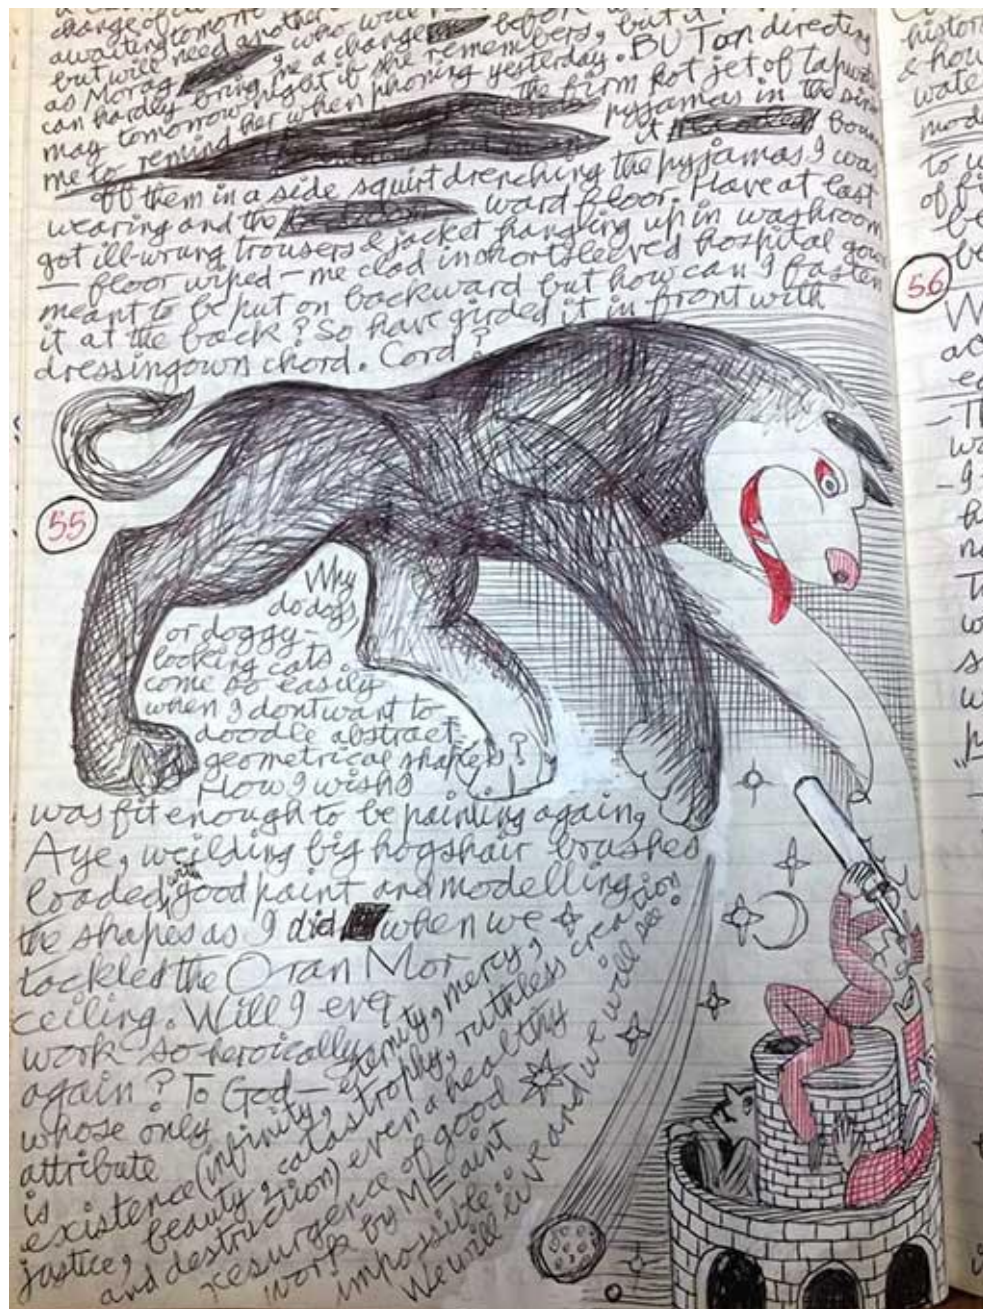 change of
awaiting tomorrow
but will need another who will
as Morag , me a change before
can hardly bring
tomorrow night if she remembers, but it
may her when phoning yesterday. BUT on directing
me to remind the firm hot jet of tapwater
pyjamas in the sink
it
off them in a side squirt drenching the pyjamas I was
wearing and the ward floor. Have at last
got ill-wrung trousers & jacket hanging up in washroom
— floor wiped — me clad in shortsleeved hospital gown
meant to be put on backward but how can I fasten
it at the back? So have girded it in front with
dressingown chord. Cord?
55
Why
do dogs
or doggy-
looking cats
come so easily
when I dont want to
doodle abstract
geometrical shapes?
How I wish I
was fit enough to be painting again,
Aye, weilding big hogshair brushes
loaded with good paint and modelling
the shapes as I did when we
tackled the Oran Mor
ceiling. Will I ever
work so heroically
again? To God —
whose only
attribute
is
existence (infinity, eternity, mercy,
justice, beauty, catastrophy, ruthless creation
and destruction) even a healthy
resurgence of good
work by ME aint
impossible.
We will live and we will see.
histor
& how
water
mode
to
of fi
be
be
56